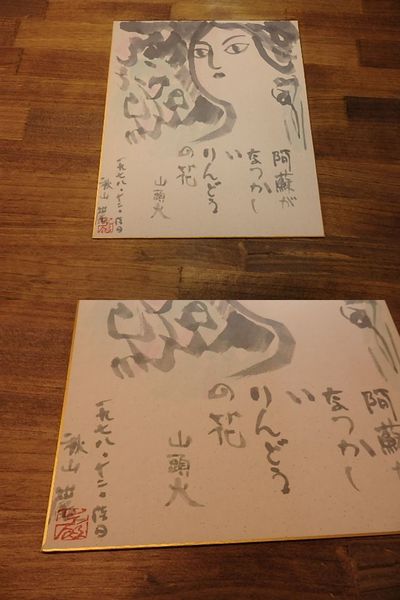 阿蘇が
なつかし
い
りんどう
の花
山頭火
一九七八・十二・佳日
秋山
阿蘇
なつかし
い
りんどう
の花
山頭火
一九七八・十二・佳日
秋山